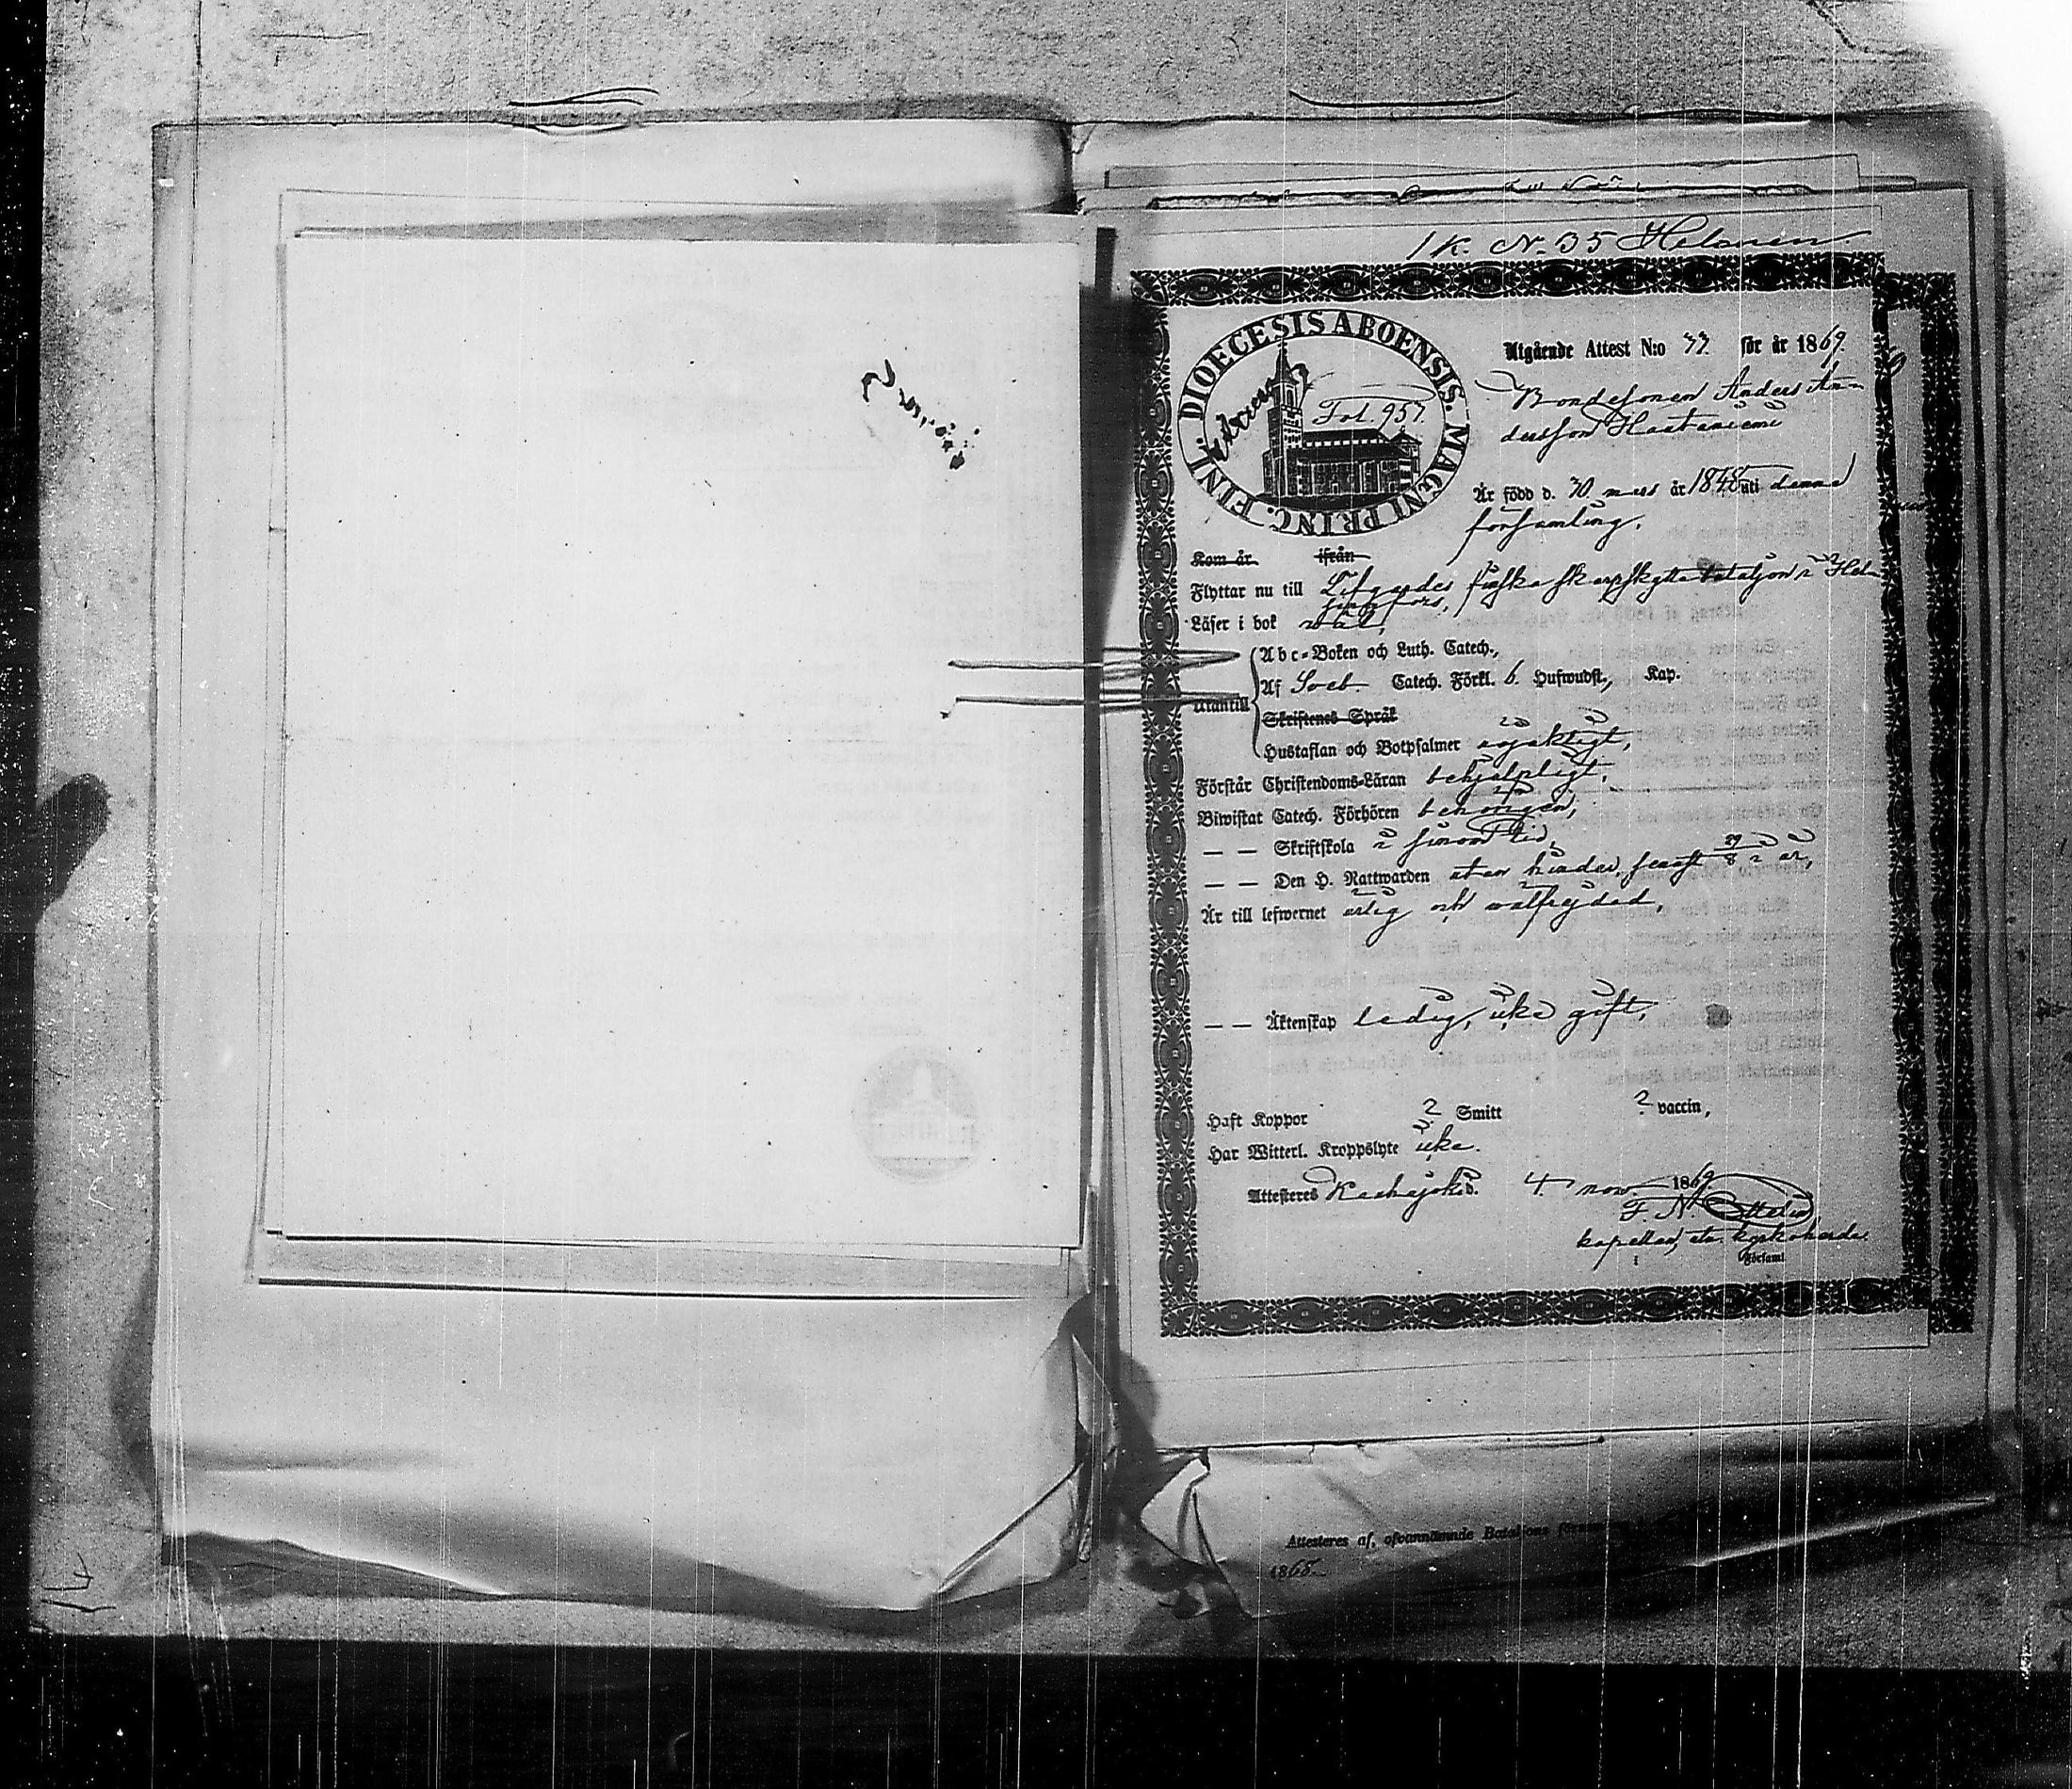 1 K. No 35 Helsinen
DIOECESIS ABOENSIS. MAGNI PRINC. FINL.
Fol. 957.
Utgående Attest N:o 77. för år 1869.
Bondesonen Anders An-
dersson Haataniemi
Är född d. 30 mars år 1848 uti denna
församling.
Kom år ifrån
Flyttar nu till Lifgardes finska skarpskytte bataljon i Hel-
singfors,
Läser i bok wäl,
Utantill
Abc-Boken och Luth. Catech.,
Af Sveb. Catech. Förkl. 6. Hufwudst., Kap.
Skriftenes Språk
Hustaflan och Botpsalmer
Förstår Christendoms-Läran behjelpligt.
Biwistat Catech. Förhören behörigen,
— — Skriftskola i sinom tid,
— — Den H. Nattwarden utan hinder, senast 29/8 i år,
Är till lefwernet ärlig och wälfrejdad,
— — Äktenskap ledig, icke gift,
Haft Koppor ? Smitt ? vaccin,
Har Witterl. Kroppslyte icke.
Attesteres Kauhajoki d. 4. nov. 1869.
F. N.
kapellan, etc. kyrkoherde.
i Församl
Attesteres af, ofvannämnde Bataljons
1868.